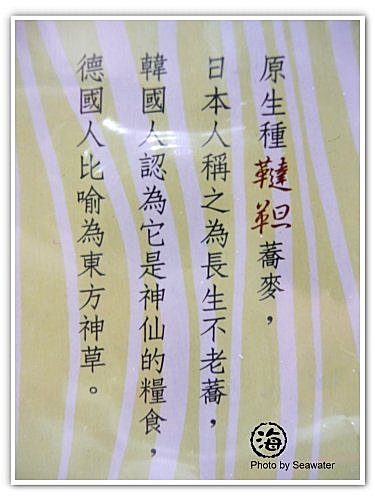 原生種韃靼蕎麥，
日本人稱之為長生不老蕎，
韓國人認為它是神仙的糧食，
德國人比喻為東方神草。
海
Photo by Seawater